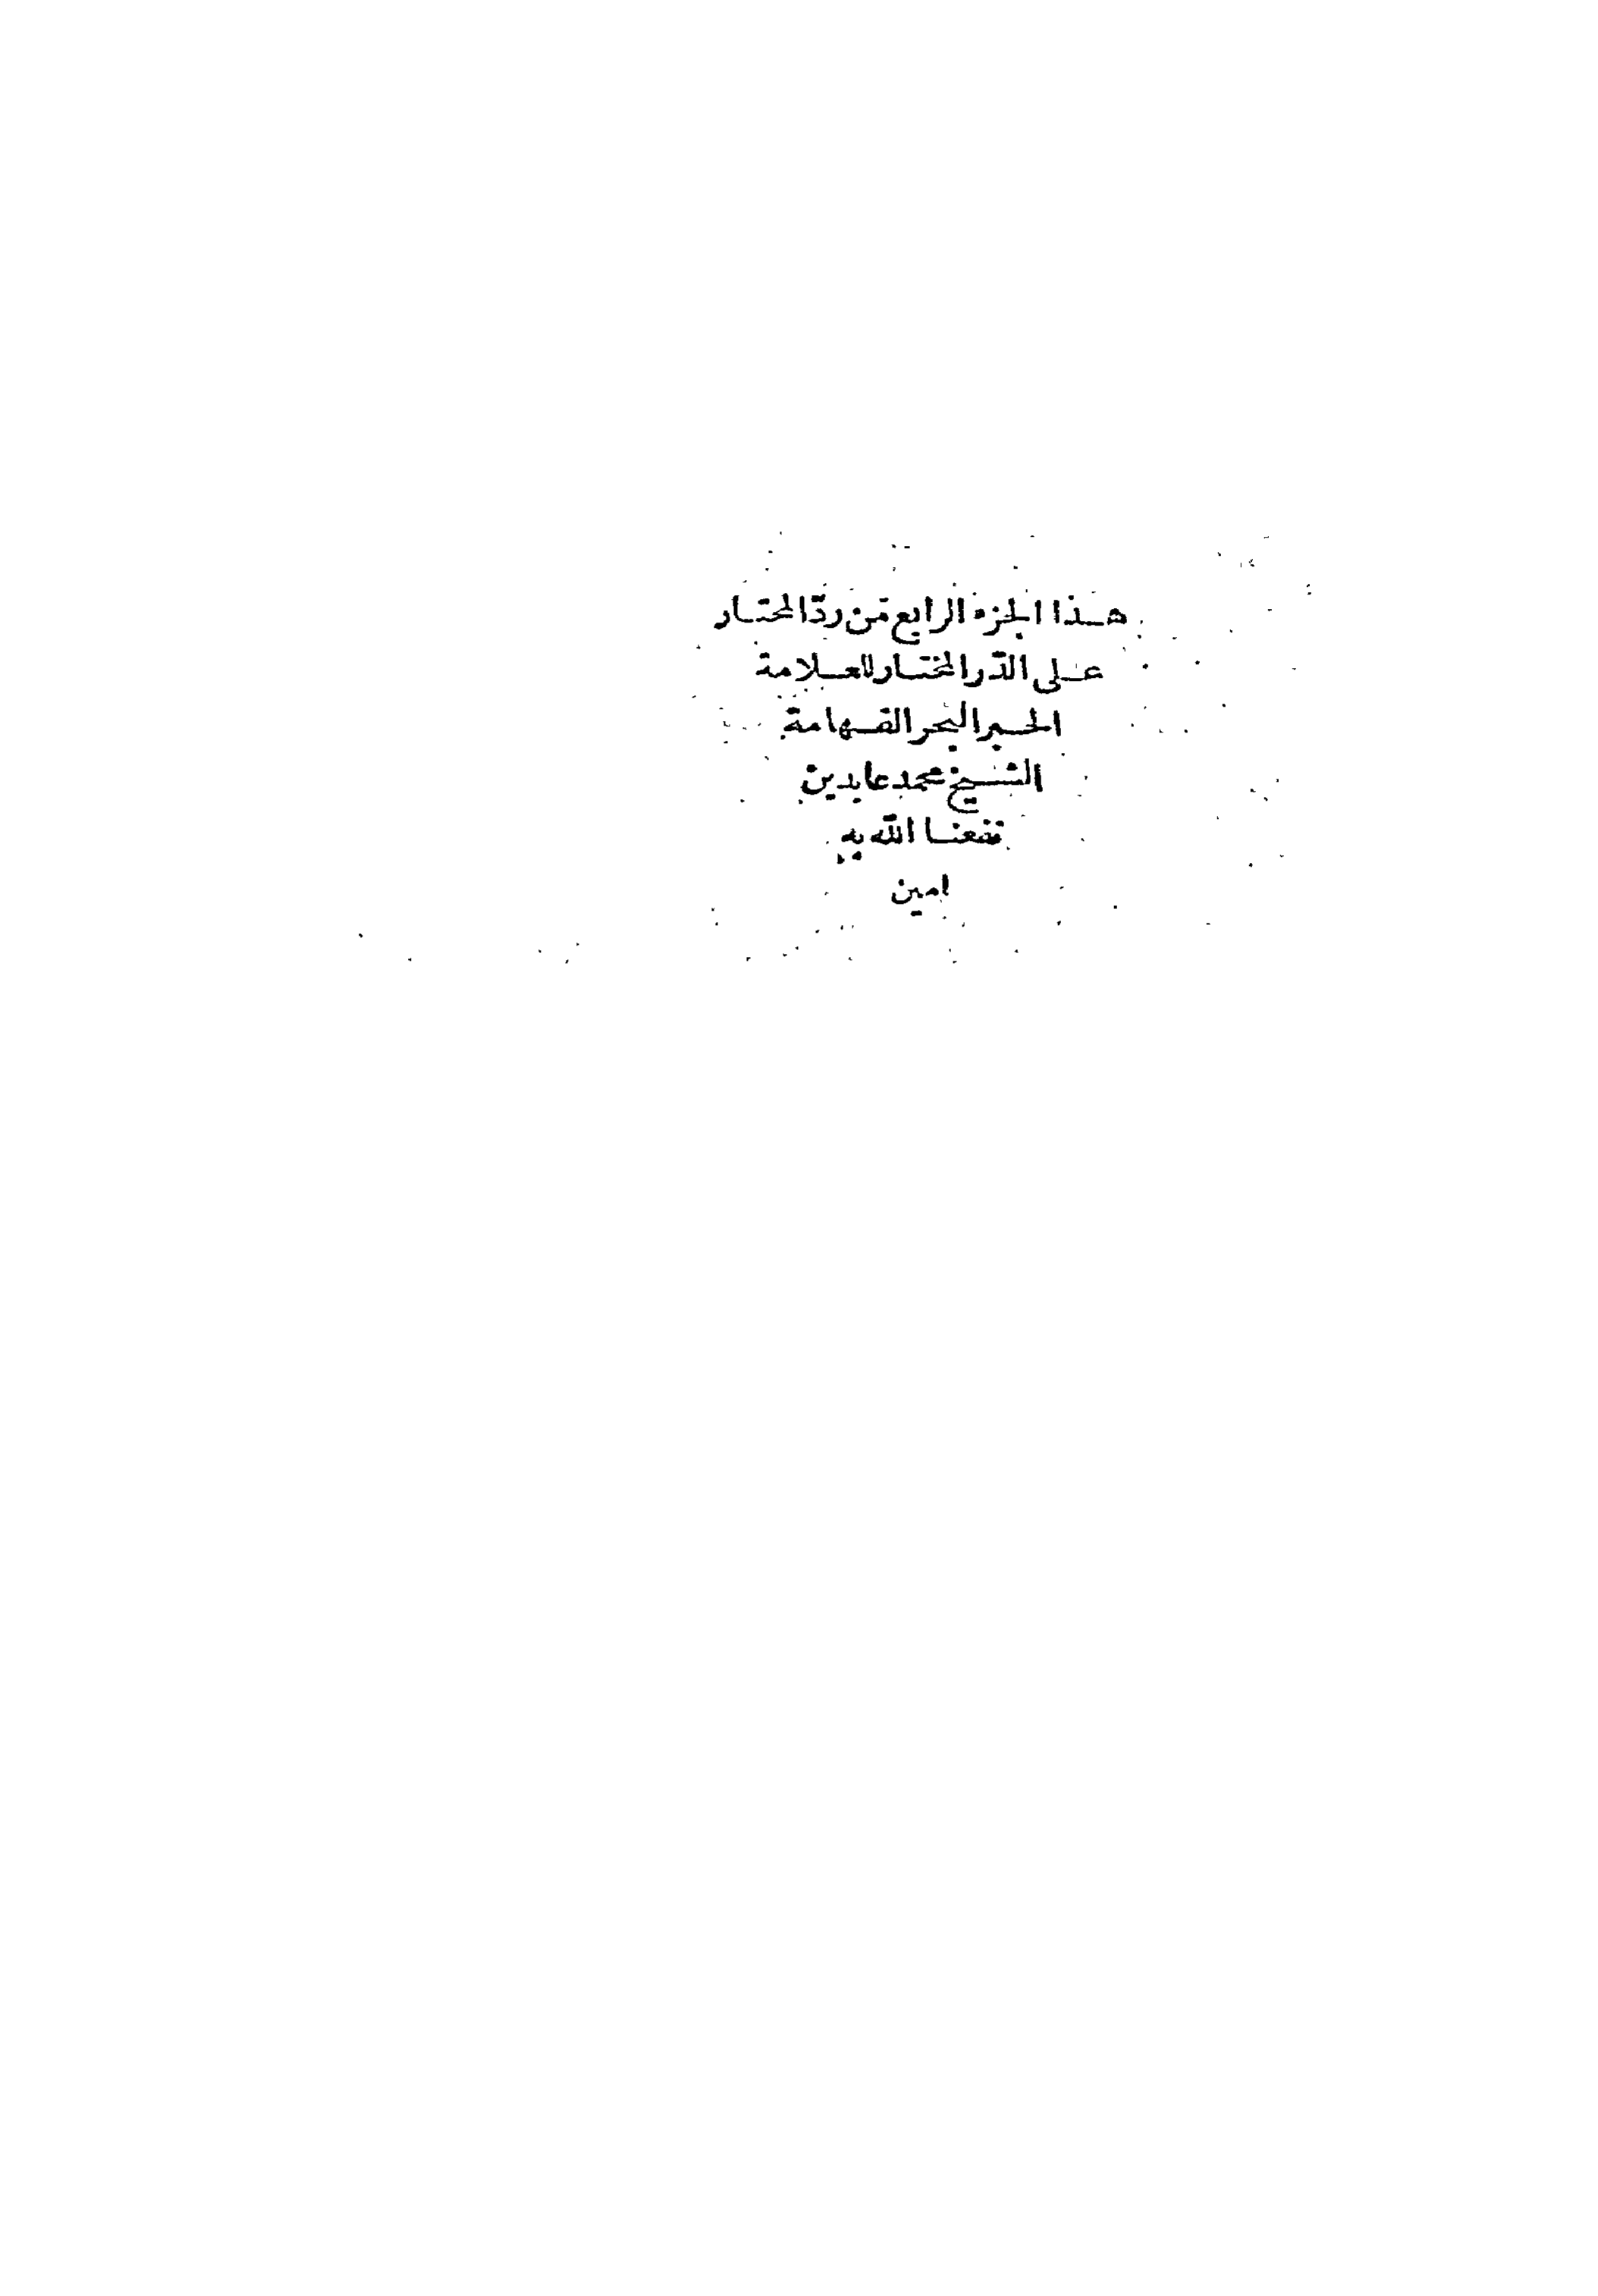 هذا الجزء الرابع من ردّ المحتار
على الدّر المختار للعلامة
الحبر البحر الفهامة
الشيخ محمد عابدين
نفعنا الله به
امين